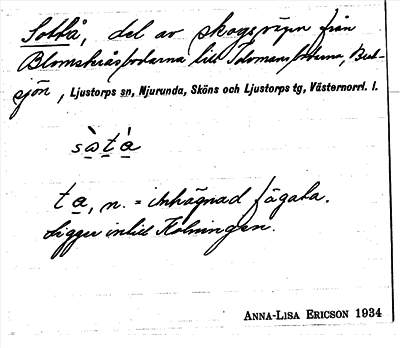 Sottå, del av skogsvägen från
Blomsteråsbodarna till Tolomansbodarna, Bul-
sjön, Ljustorps sn, Njurunda, Sköns och Ljustorps tg, Västernorrl. l.
ta, n. = inhägnad fägata.
Ligger intill Kolningen.
ANNA-LISA ERICSON 1934